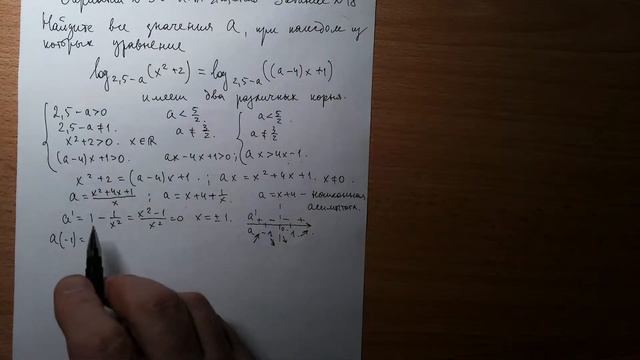 Найдите все значения a, при каждом из
которых уравнение
log₂,₅₋ₐ(x²+2) = log₂,₅₋ₐ((a-4)x+1)
имеет два различных корня.
{ 2,5-a>0 a<5/2 { a<5/2
2,5-a≠1. a≠3/2 a≠3/2
x²+2>0. x∈R
(a-4)x+1>0. ax-4x+1>0; ax>4x-1.
x²+2=(a-4)x+1.; ax=x²+4x+1. x≠0.
a=(x²+4x+1)/x ; a=x+4+1/x. a=x+4 - наклонная
асимптота.
a'=1-1/x²=(x²-1)/x²=0 x=±1. a' + - - +
a(-1)= a -1 0 1